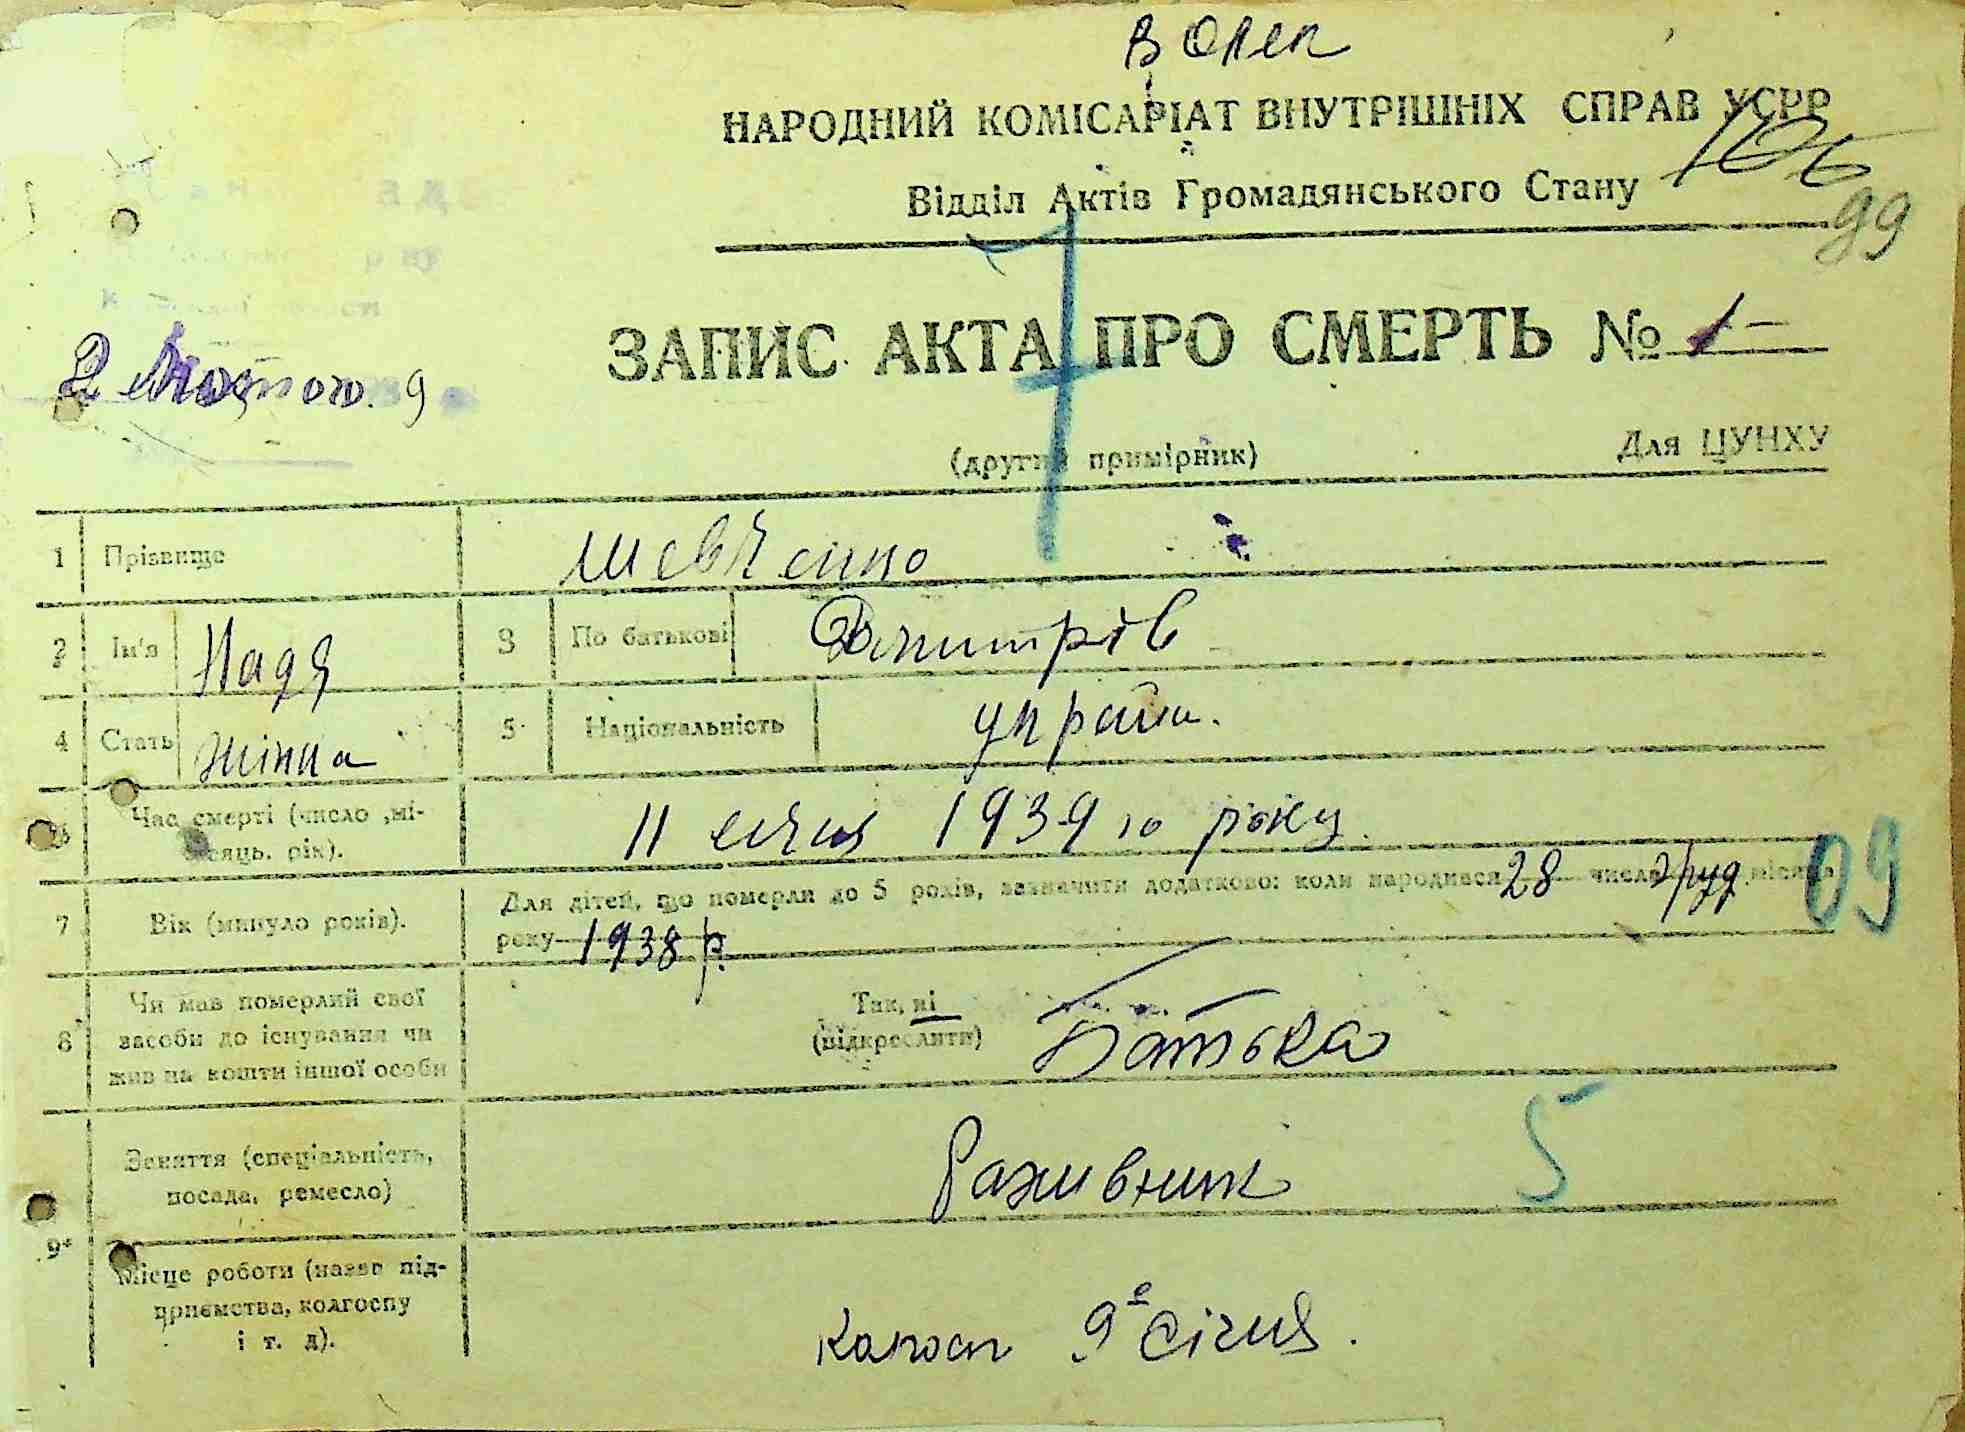 НАРОДНИЙ КОМІСАРІАТ ВНУТРІШНІХ СПРАВ УСРР
106
Відділ Актів Громадянського Стану
99
7
2 лютого 9
ЗАПИС АКТА ПРО СМЕРТЬ № 1
(другий примірник)
Для ЦУНХУ
1 Прізвище Шевченко
2 Ім'я Надя 3 По батькові Дмитрів
4 Стать жінка 5 Національність україн.
Час смерті (число, мі-
сяць, рік). 11 січня 1939 го року.
7 Вік (минуло років). Для дітей, що померли до 5 років, зазначити додатково: коли народився 28 числа груд. місяця
року 1938 р.
09
8 Чи мав померлий свої
засоби до існування чи
жив на кошти іншої особи
Так, ні
(підкреслити)
Батька
Заняття (спеціальність,
посада, ремесло)
5
9
Місце роботи (назва під-
приємства, колгоспу
і т. д).
колгосп 9е Січня.